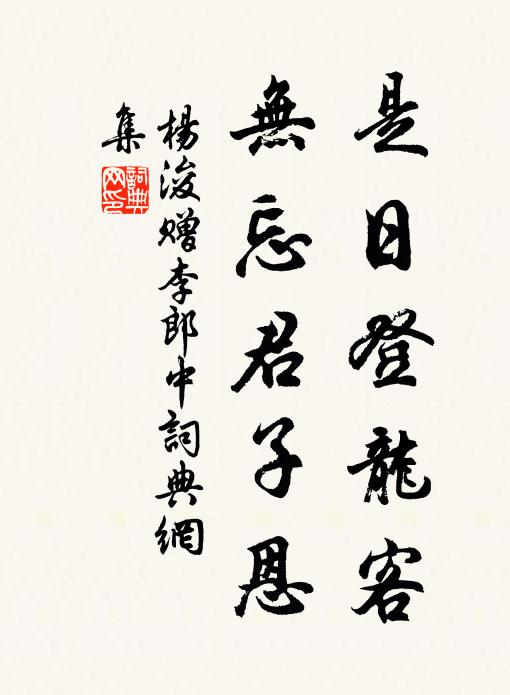 是日登龍客
無忘君子恩
楊浚贈李郎中詞典網
集
詞典
网印